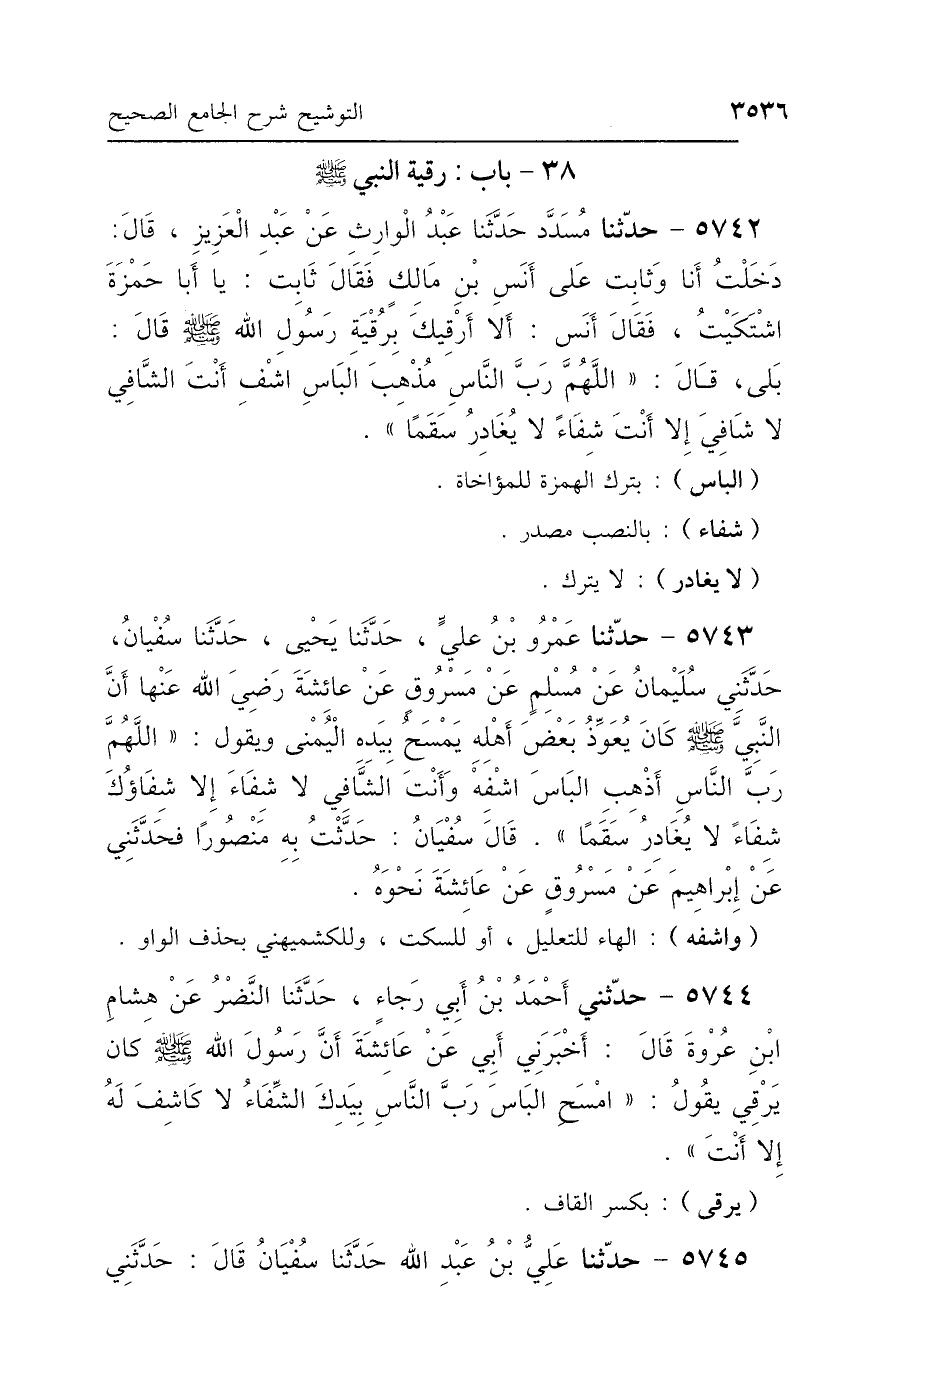 ٣٥٣٦ التوشيح شرح الجامع الصحيح
٣٨ - باب : رقية النبي ﷺ
٥٧٤٢ - حدّثنا مُسَدَّد حَدَّثَنا عَبْدُ الْوارِثِ عَنْ عَبْدِ الْعَزِيزِ ، قَالَ:
دَخَلْتُ أَنا وَثابِت عَلى أَنَسِ بْنِ مَالكٍ فَقَالَ ثَابِت : يا أَبا حَمْزَةَ
اشْتَكَيْتُ ، فَقَالَ أَنَس : أَلا أَرْقِيكَ بِرُقْيَةِ رَسُولِ الله ﷺ قَالَ :
بَلى، قَـالَ : « اللَّهُمَّ رَبَّ النَّاسِ مُذْهِبَ البَاسِ اشْفِ أَنْتَ الشَّافِي
لا شَافِيَ إِلا أَنْتَ شِفَاءً لا يُغَادِرُ سَقَمًا » .
( الباس ) : بترك الهمزة للمؤاخاة .
( شفاء ) : بالنصب مصدر .
( لا يغادر ) : لا يترك .
٥٧٤٣ - حدّثنا عَمْرُو بْنُ عليٍّ ، حَدَّثَنا يَحْيى ، حَدَّثَنا سُفْيانُ،
حَدَّثَنِي سُلَيْمانُ عَنْ مُسْلِمٍ عَنْ مَسْرُوقٍ عَنْ عائِشَةَ رَضِيَ الله عَنْها أَنَّ
النَّبِيَّ ﷺ كَانَ يُعَوِّذُ بَعْضَ أَهْلِهِ يَمْسَحُ بِيَدِهِ الْيُمْنى ويقول : « اللَّهُمَّ
رَبَّ النَّاسِ أَذْهِبِ البَاسَ اشْفِهْ وَأَنْتَ الشَّافِي لا شفَاءَ إِلا شِفَاؤُكَ
شِفَاءً لا يُغَادِرُ سَقَمًا » . قَالَ سُفْيَانُ : حَدَّثْتُ بِهِ مَنْصُورًا فحَدَّثَنِي
عَنْ إِبْراهِيمَ عَنْ مَسْرُوقٍ عَنْ عَائِشَةَ نَحْوَهُ .
( واشفه ) : الهاء للتعليل ، أو للسكت ، وللكشميهني بحذف الواو .
٥٧٤٤ - حدّثني أَحْمَدُ بْنُ أَبِي رَجاءٍ ، حَدَّثَنا النَّضْرُ عَنْ هِشامِ
ابْنِ عُرْوةَ قَالَ : أَخْبَرَنِي أَبِي عَنْ عَائِشَةَ أَنَّ رَسُولَ الله ﷺ كان
يَرْقِي يقُولُ : « امْسَحِ البَاسَ رَبَّ النَّاسِ بِيَدِكَ الشِّفَاءُ لا كَاشِفَ لَهُ
إِلا أَنْتَ » .
( يرقى ) : بكسر القاف .
٥٧٤٥ - حدّثنا عَلِيُّ بْنُ عَبْدِ الله حَدَّثَنا سُفْيَانُ قَالَ : حَدَّثَنِي